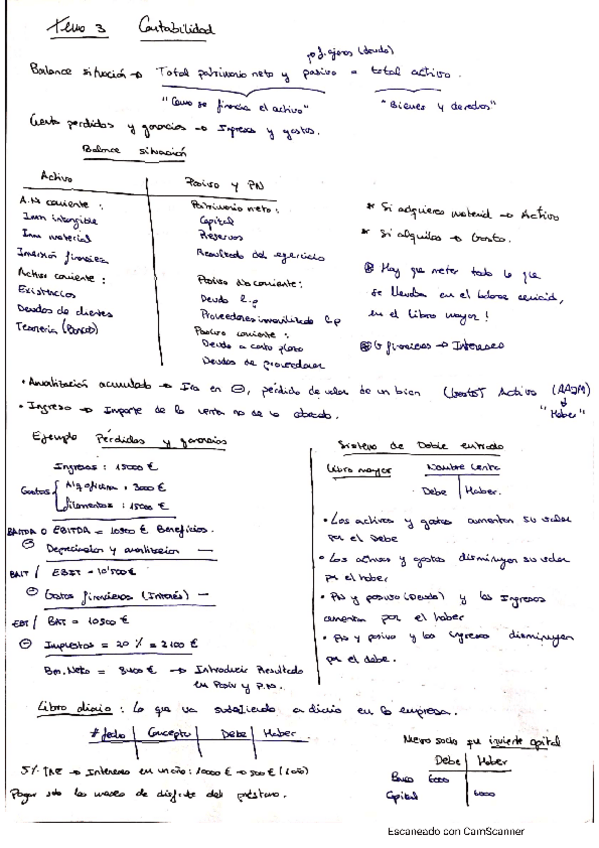 Tema 3 Contabilidad
(deuda)
Balance situación → Total patrimonio neto y pasivo = total activo.
"Como se financia el activo" "Bienes y derechos"
Cuenta perdidas y ganancias → Ingresos y gastos.
Balance situación
Activo
A.N corriente :
Inm intangible
Inm material
Inversión financiera
Activo corriente :
Existencias
Deudas de clientes
Tesoreria (Banco)
Pasivo y PN
Patrimonio neto :
Capital
Reservas
Resultado del ejercicio
Pasivo No corriente :
Deuda l.p
Proveedores inmovilizado l.p
Pasivo corriente :
Deuda a corto plazo
Deudas de proveedores
* Si adquieres material → Activo
* Si alquilas → Gasto.
Hay que meter todo lo que
se llevaba en el balance
en el libro mayor !
G financieros → Intereses
• Amortización acumulada → Ira en ⊖, pérdida de valor de un bien Activo (AAIM)
"Haber"
• Ingreso → Importe de la venta no de lo cobrado.
Ejemplo Pérdidas y ganancias
Ingresos : 15000 €
Gastos
: 3000 €
: 1500 €
EBITDA = 10500 € Beneficios.
⊖ Depreciacion y amortizacion —
BAIT / EBIT = 10'500 €
⊖ Gastos financieros (Interés) —
EBT / BAT = 10500 €
⊖ Impuestos = 20 % = 2100 €
Bn. Neto = 8400 € → Introducir Resultado
en Pasiv y P.N.
Sistema de Doble entrada
Libro mayor Nombre Cuenta
Debe | Haber.
• Los activos y gastos aumentan su valor
por el Debe
• Los activos y gastos disminuyen su valor
por el haber
• PN y pasivo (Deuda) y los Ingresos
aumentan por el haber
• PN y pasivo y los ingresos disminuyen
por el debe.
Libro diario : Lo que va sucediendo a diario en la empresa.
# fecha | Concepto | Debe | Haber
5% TAE → Intereses en un año : 10000 € → 500 € (1 año)
Pagar solo los meses de disfrute del préstamo.
Nuevo socio que invierte capital
Debe | Haber
Banco 6000
Capital 6000
Escaneado con CamScanner